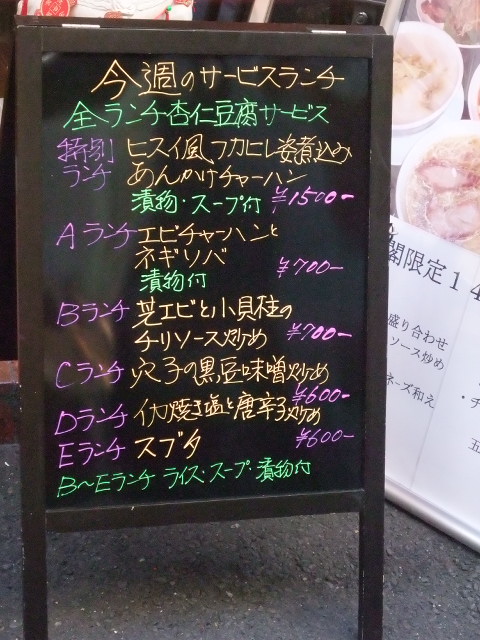 今週のサービスランチ
全ランチ杏仁豆腐サービス
特別ランチ ヒスイ風フカヒレ姿煮込み
あんかけチャーハン
漬物・スープ付 ¥1500-
Aランチ エビチャーハンと
ネギソバ
漬物付 ¥700-
Bランチ 芝エビと小貝柱の
チリソース炒め ¥700-
Cランチ 穴子の黒豆味噌炒め
¥600-
Dランチ イカ焼き塩と唐辛子炒め
Eランチ スブタ ¥600-
B〜Eランチ ライス・スープ 漬物付
閣限定14
盛り合わせ
ソース炒め
ネーズ和え
・チ
五